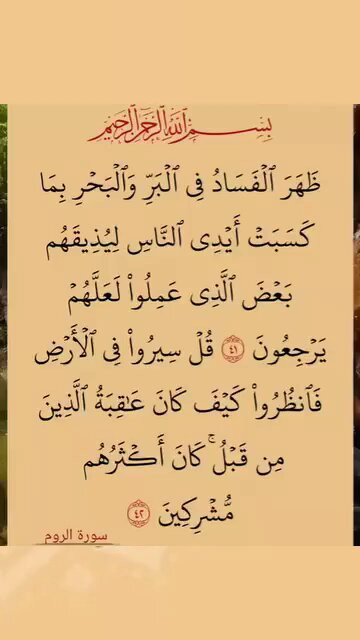 بِسْمِ ٱللَّهِ ٱلرَّحْمَٰنِ ٱلرَّحِيمِ
ظَهَرَ ٱلْفَسَادُ فِى ٱلْبَرِّ وَٱلْبَحْرِ بِمَا
كَسَبَتْ أَيْدِى ٱلنَّاسِ لِيُذِيقَهُم
بَعْضَ ٱلَّذِى عَمِلُوا۟ لَعَلَّهُمْ
يَرْجِعُونَ ٤١ قُلْ سِيرُوا۟ فِى ٱلْأَرْضِ
فَٱنظُرُوا۟ كَيْفَ كَانَ عَٰقِبَةُ ٱلَّذِينَ
مِن قَبْلُ ۚ كَانَ أَكْثَرُهُم
مُّشْرِكِينَ ٤٢
سورة الروم